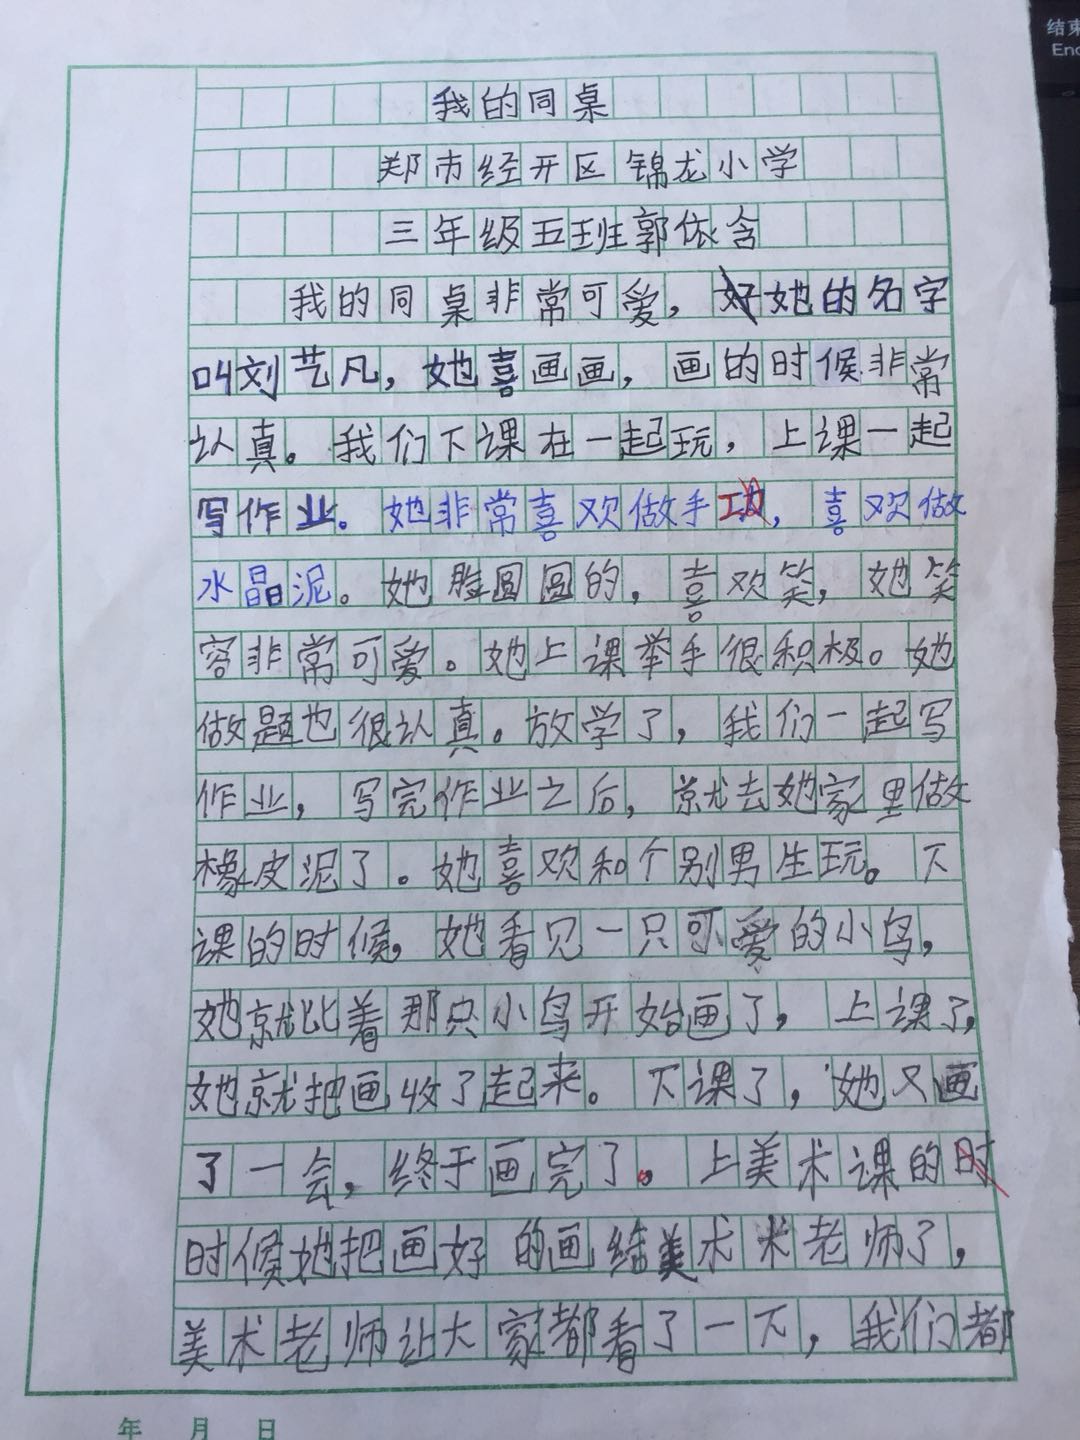 结束
End
我的同桌
郑市经开区锦龙小学
三年级五班郭依含
我的同桌非常可爱，她的名字
叫刘艺凡，她喜画画，画的时候非常
认真。我们下课在一起玩，上课一起
写作业。她非常喜欢做手工，喜欢做
水晶泥。她脸圆圆的，喜欢笑，她笑
容非常可爱。她上课举手很积极。她
做题也很认真。放学了，我们一起写
作业，写完作业之后，就去她家里做
橡皮泥了。她喜欢和个别男生玩。下
课的时候，她看见一只可爱的小鸟，
她就比着那只小鸟开始画了，上课了，
她就把画收了起来。下课了，她又画
了一会，终于画完了。上美术课的
时候她把画好的画给美术术老师了，
美术老师让大家都看了一下，我们都
年 月 日